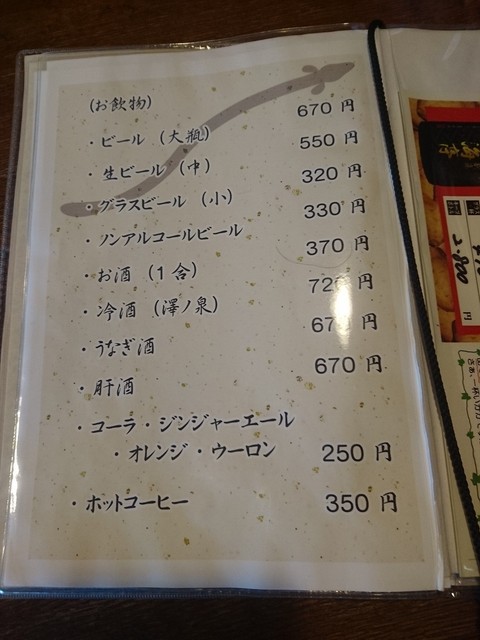 (お飲物)
・ビール (大瓶) 670 円
・生ビール (中) 550 円
・グラスビール (小) 320 円
・ノンアルコールビール 330 円
・お酒 (1合) 370 円
・冷酒 (澤ノ泉) 72 円
・うなぎ酒 67 円
・肝酒 670 円
・コーラ・ジンジャーエール
・オレンジ・ウーロン 250 円
・ホットコーヒー 350 円
円